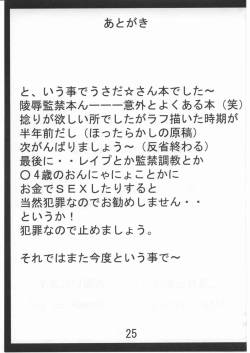 あとがき
と、いう事でうさだ☆さん本でした～
陵辱監禁本ん―――意外とよくある本（笑）
捻りが欲しい所でしたがラフ描いた時期が
半年前だし（ほったらかしの原稿）
次がんばりましょう～（反省終わる）
最後に・・レイプとか監禁調教とか
〇4歳のおんにゃにょことかに
お金でＳＥＸしたりすると
当然犯罪なのでお勧めしません・・
というか！
犯罪なので止めましょう。
それではまた今度という事で～
25